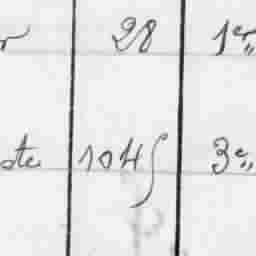 r 28 1er„
ste 1045 3e„